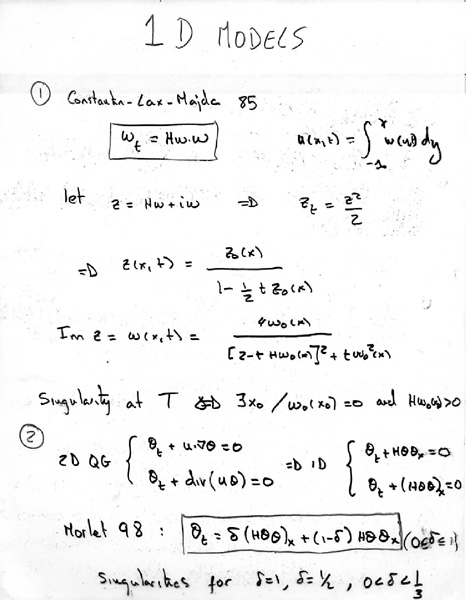 1D MODELS
① Constantin-Lax-Majda 85
ω_t = Hω·ω    u(x,t) = ∫_{-∞}^{x} ω(y) dy
let z = Hω + iω ⇒ z_t = z²/2
⇒ z(x,t) = z₀(x) / (1 - ½ t z₀(x))
Im z = ω(x,t) = 4ω₀(x) / ([2-t Hω₀(x)]² + tω₀²(x))
Singularity at T ⇔ ∃x₀ / ω₀(x₀)=0 and Hω₀(x₀)>0
② 2D QG { θ_t + u·∇θ = 0    ⇒ 1D { θ_t + Hθθ_x = 0
θ_t + div(uθ) = 0    θ_t + (Hθθ)_x = 0
Morlet 98 : θ_t = δ(Hθθ)_x + (1-δ) Hθθ_x (0≤δ≤1)
Singularities for δ=1, δ=½, 0<δ<1/3